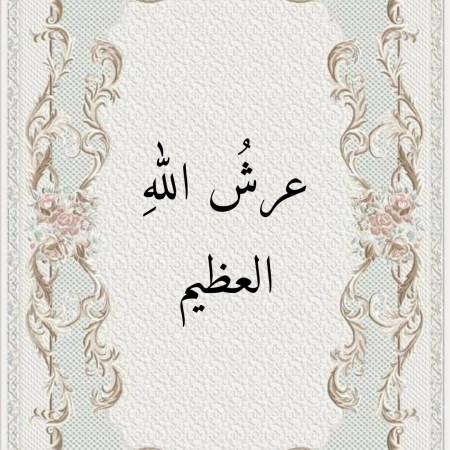 عرشُ اللهِ
العظيم